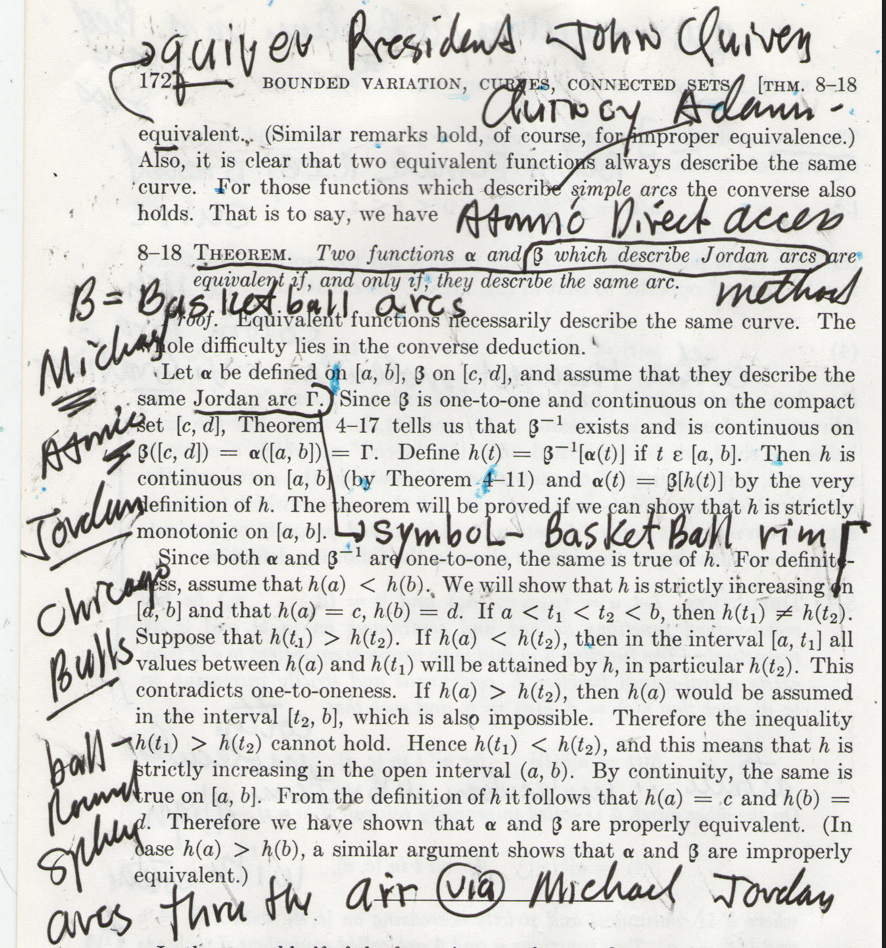 quiver President John Quiven
172 BOUNDED VARIATION, CURVES, CONNECTED SETS [THM. 8-18
Quincy Adam-
equivalent. (Similar remarks hold, of course, for improper equivalence.)
Also, it is clear that two equivalent functions always describe the same
curve. For those functions which describe simple arcs the converse also
holds. That is to say, we have
Atomic Direct access
8-18 THEOREM. Two functions α and β which describe Jordan arcs are
equivalent if, and only if, they describe the same arc.
method
B = Basketball arcs
Proof. Equivalent functions necessarily describe the same curve. The
whole difficulty lies in the converse deduction.
Let α be defined on [a, b], β on [c, d], and assume that they describe the
same Jordan arc Γ. Since β is one-to-one and continuous on the compact
set [c, d], Theorem 4-17 tells us that β⁻¹ exists and is continuous on
β([c, d]) = α([a, b]) = Γ. Define h(t) = β⁻¹[α(t)] if t ε [a, b]. Then h is
continuous on [a, b] (by Theorem 4-11) and α(t) = β[h(t)] by the very
definition of h. The theorem will be proved if we can show that h is strictly
monotonic on [a, b].
symbol- Basket Ball rim Γ
Since both α and β⁻¹ are one-to-one, the same is true of h. For definite-
ness, assume that h(a) < h(b). We will show that h is strictly increasing on
[a, b] and that h(a) = c, h(b) = d. If a < t₁ < t₂ < b, then h(t₁) ≠ h(t₂).
Suppose that h(t₁) > h(t₂). If h(a) < h(t₂), then in the interval [a, t₁] all
values between h(a) and h(t₁) will be attained by h, in particular h(t₂). This
contradicts one-to-oneness. If h(a) > h(t₂), then h(a) would be assumed
in the interval [t₂, b], which is also impossible. Therefore the inequality
h(t₁) > h(t₂) cannot hold. Hence h(t₁) < h(t₂), and this means that h is
strictly increasing in the open interval (a, b). By continuity, the same is
true on [a, b]. From the definition of h it follows that h(a) = c and h(b) =
d. Therefore we have shown that α and β are properly equivalent. (In
case h(a) > h(b), a similar argument shows that α and β are improperly
equivalent.)
Michael
Atomic
Jordan
Chicago
Bulls
ball-
Round
Sphere
arcs thru the air via Michael Jordan